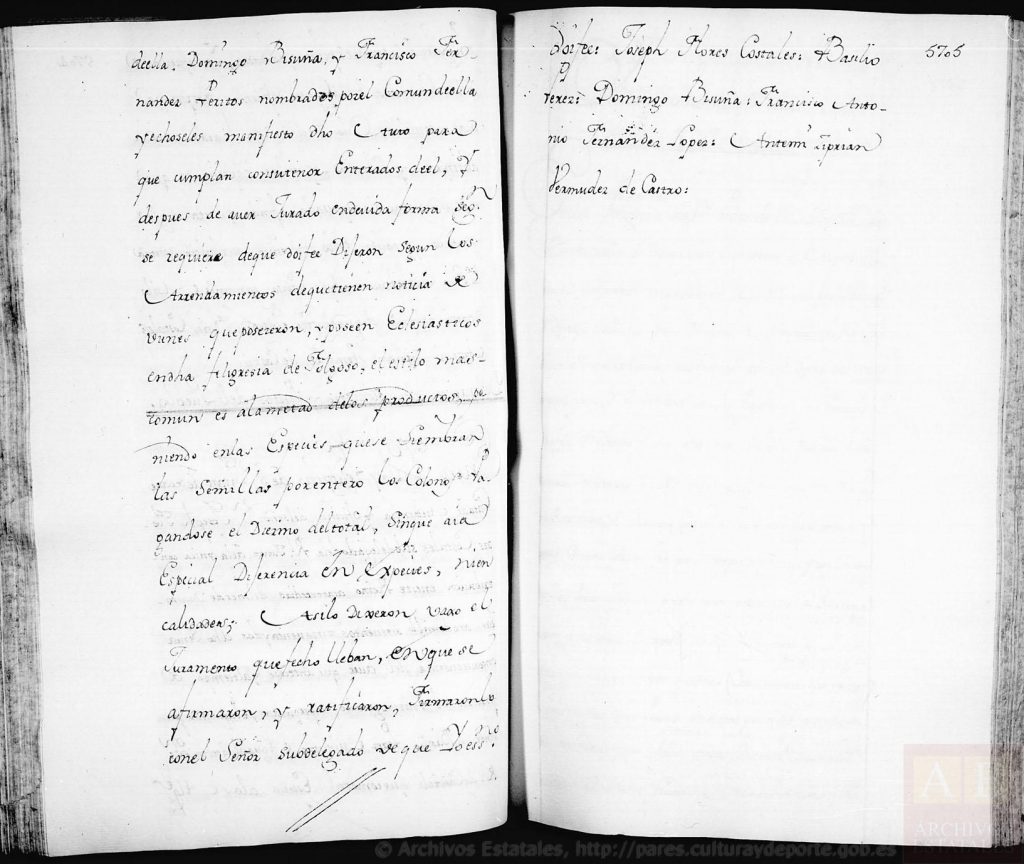 deella, Domingo Bisuña, y Francisco Fer-
nandez Peritos nombrados porel Comundeella
yechoseles manifiesto dho Auto para
que cumplan consutenor Enterados deel, Y
despues de aver Jurado endevida forma segn
se requiere deque doifee Dijeron segun los
Arrendamientos dequetienen noticia de
vienes queposeieron, y poseen Eclesiasticos
endha feligresia de Folgoso, el estilo mas-
comun es alametad delos productos, po
niendo enlas Especies, quese Siembran
las Semillas porentero los Colonos Pa-
gandose el Diezmo deltotal, Sinque aia
Especial Diferencia en expecies, nien
calidades; Asilo Dixeron vajo el
Juramento quefecho lleban, en que se
afirmaron, y ratificaron, Firmaronlo
conel Señor Subdelegado de que Yo essno
doifee: Joseph Flores Costales: Basilio
5705
Perez: Domingo Bisuña: Francisco Anto-
nio Fernandez Lopez: Antemi Ziprian
Vermudez de Castro:
© Archivos Estatales, http://pares.culturaydeporte.gob.es
ARCHIVOS
ESTATALES